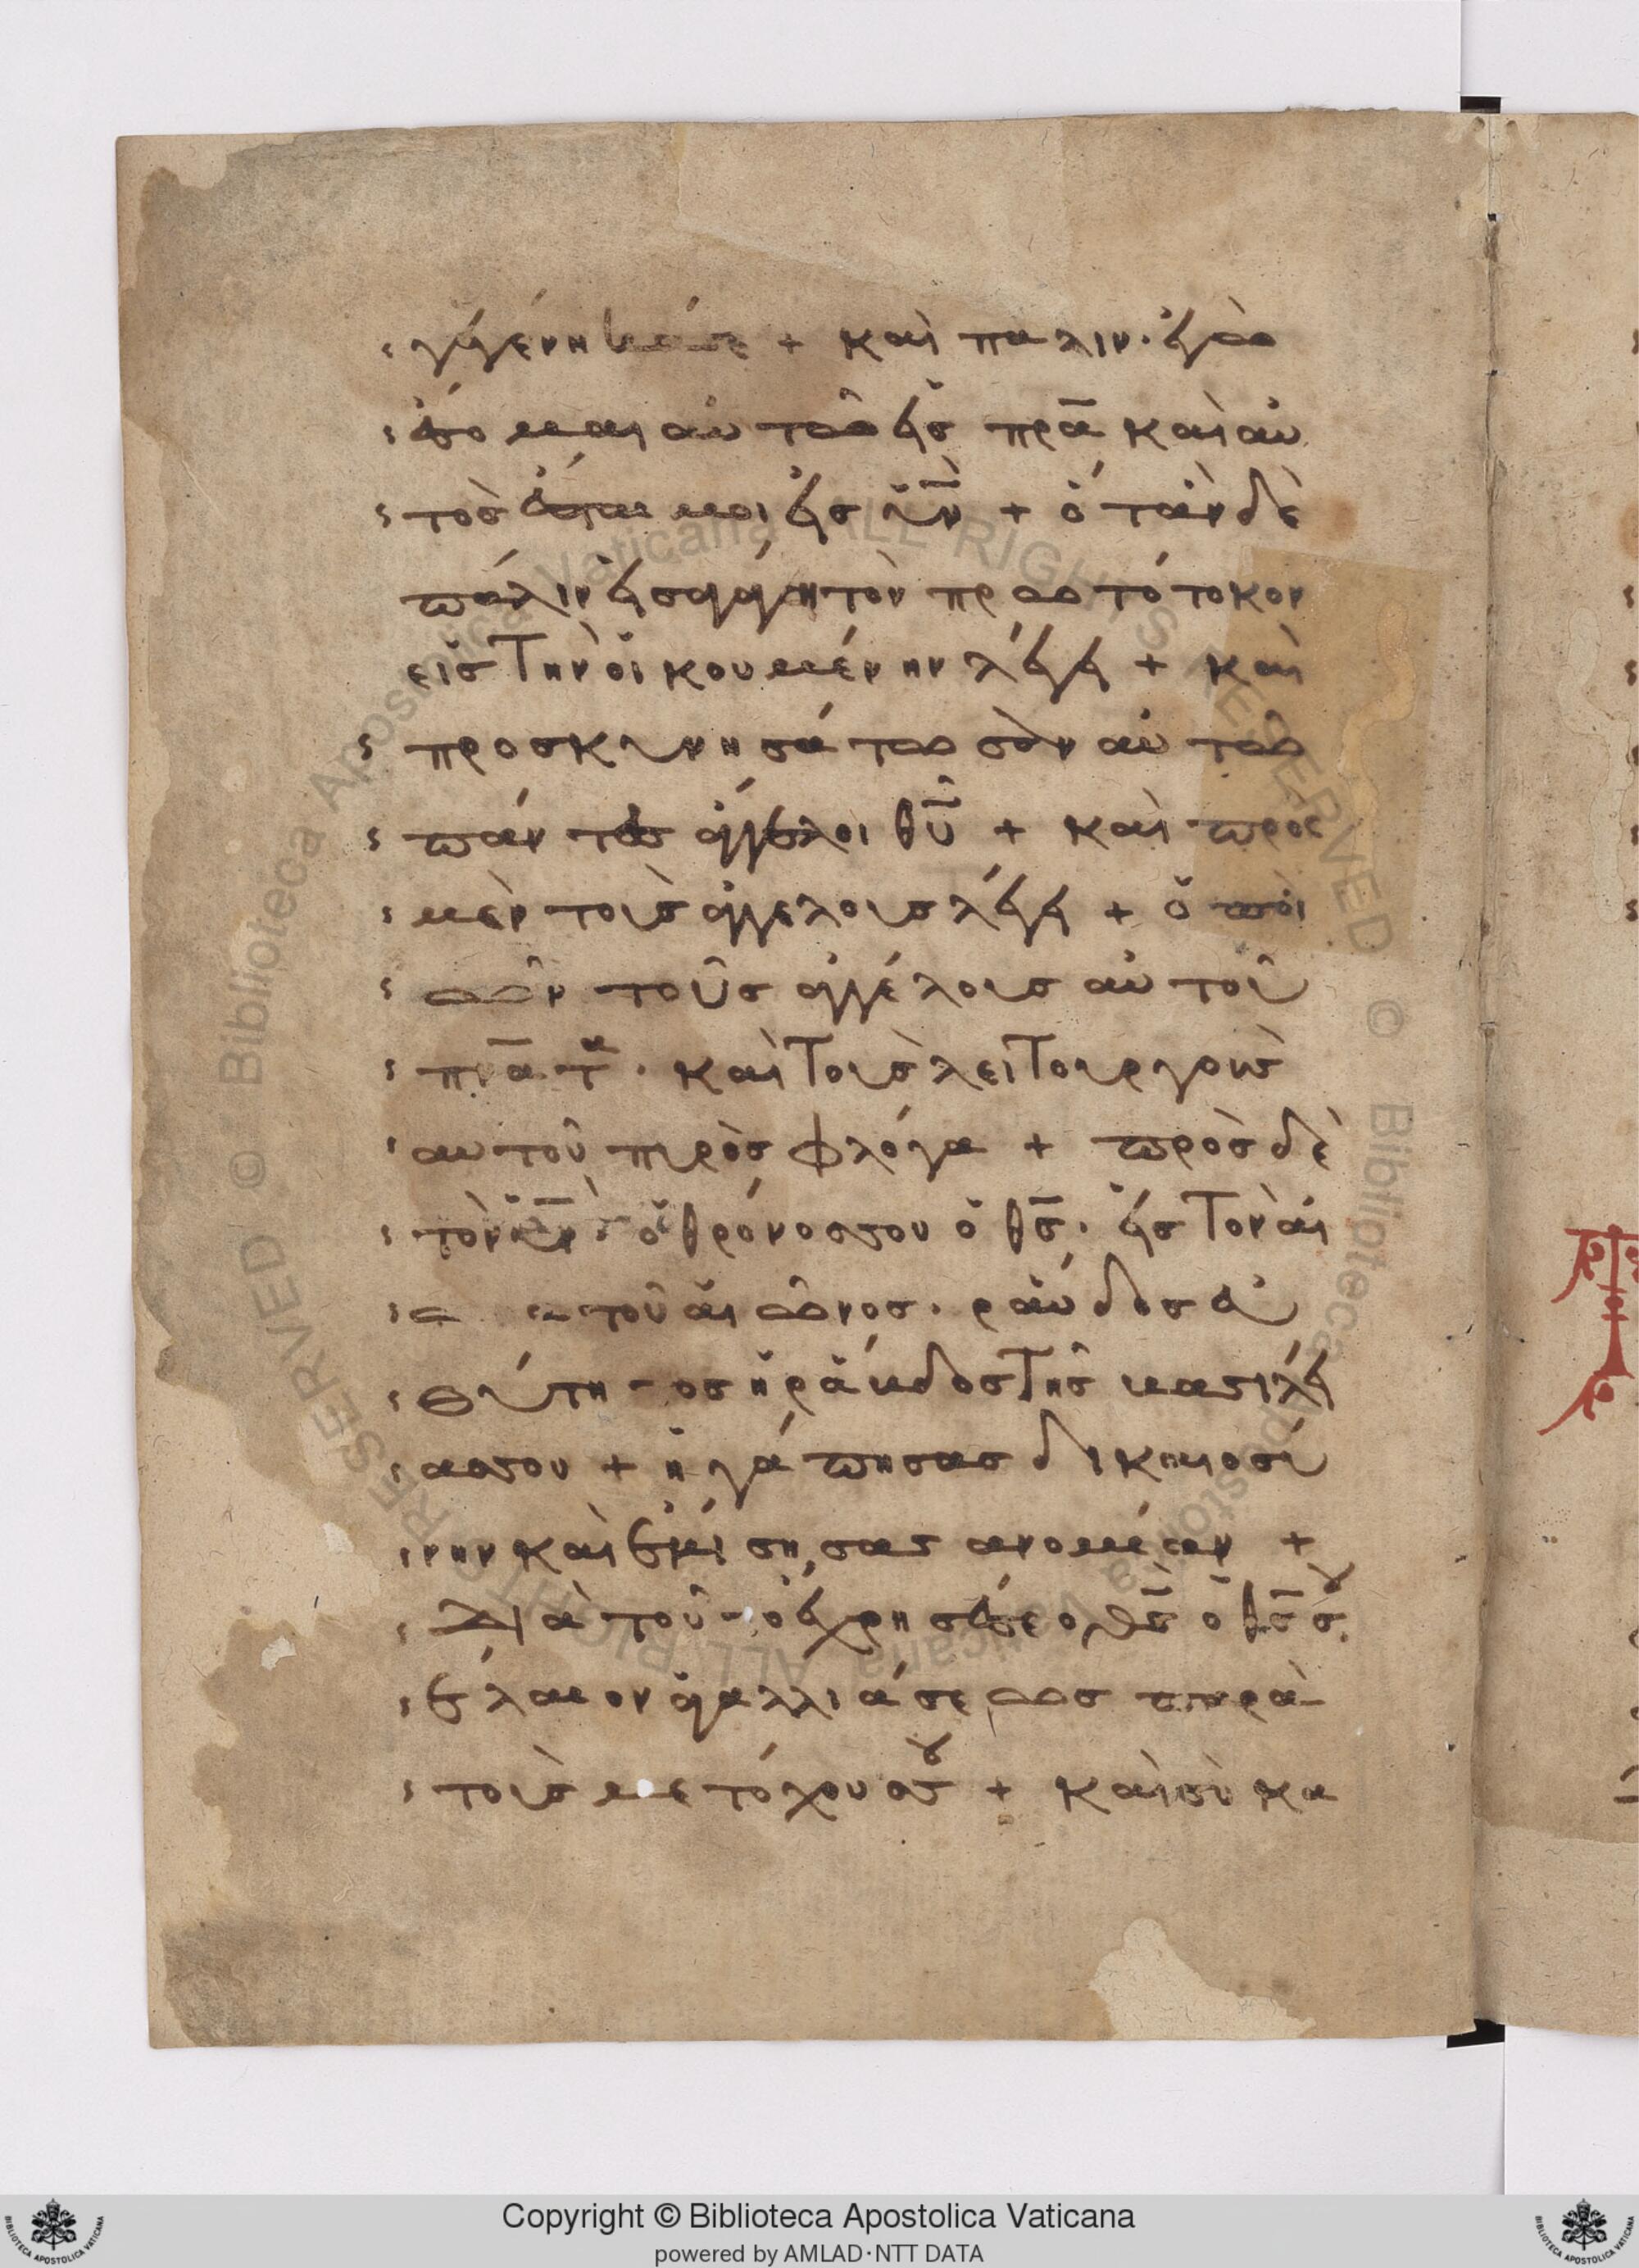 γεγέννηκά σε + καὶ παλιν· ἐγὼ
ἔσομαι αὐτῶ εἰς πρ̅α καὶ αὐ
τὸς ἔσται μοι εἰς ὑ̅ν + ὅταν δὲ
πάλιν εἰσαγάγη τὸν πρωτότοκον
εἰς τὴν οἰκουμένην λέγει + καὶ
προσκυνησάτωσαν αὐτῶ
πάντες ἄγγελοι θ̅υ + καὶ πρὸς
μὲν τοὺς ἀγγέλους λέγει + ὁ ποι
ῶν τοῦς ἀγγέλους αὐτοῦ
πν̅ατ̅α· καὶ τοὺς λειτουργοὺς
αυτοῦ πυρὸς φλόγα + πρὸς δὲ
τὸν ὑ̅ν· ὁ θρόνος σου ὁ θ̅ς· εἰς τὸν αἰ
τοῦ αἰῶνος· ράυδος εὐ
θύτητος ἡ ράυδος τῆς βασιλεί
ας σου + ἠγάπησας δικαιοσύ
νην καὶ ἐμίσησας ανομίαν +
Διὰ τοῦτο ἔχρησέ σε ὁ θ̅ς ὁ θ̅ς σου
ἔλαιον ἀγαλλιάσεως παρὰ
τοὺς μετόχους σου + καὶ σὺ κα
Copyright © Biblioteca Apostolica Vaticana
powered by AMLAD·NTT DATA